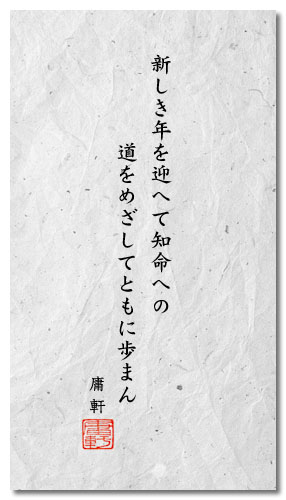 新しき年を迎へて知命への
道をめざしてともに歩まん
庸軒
庸軒